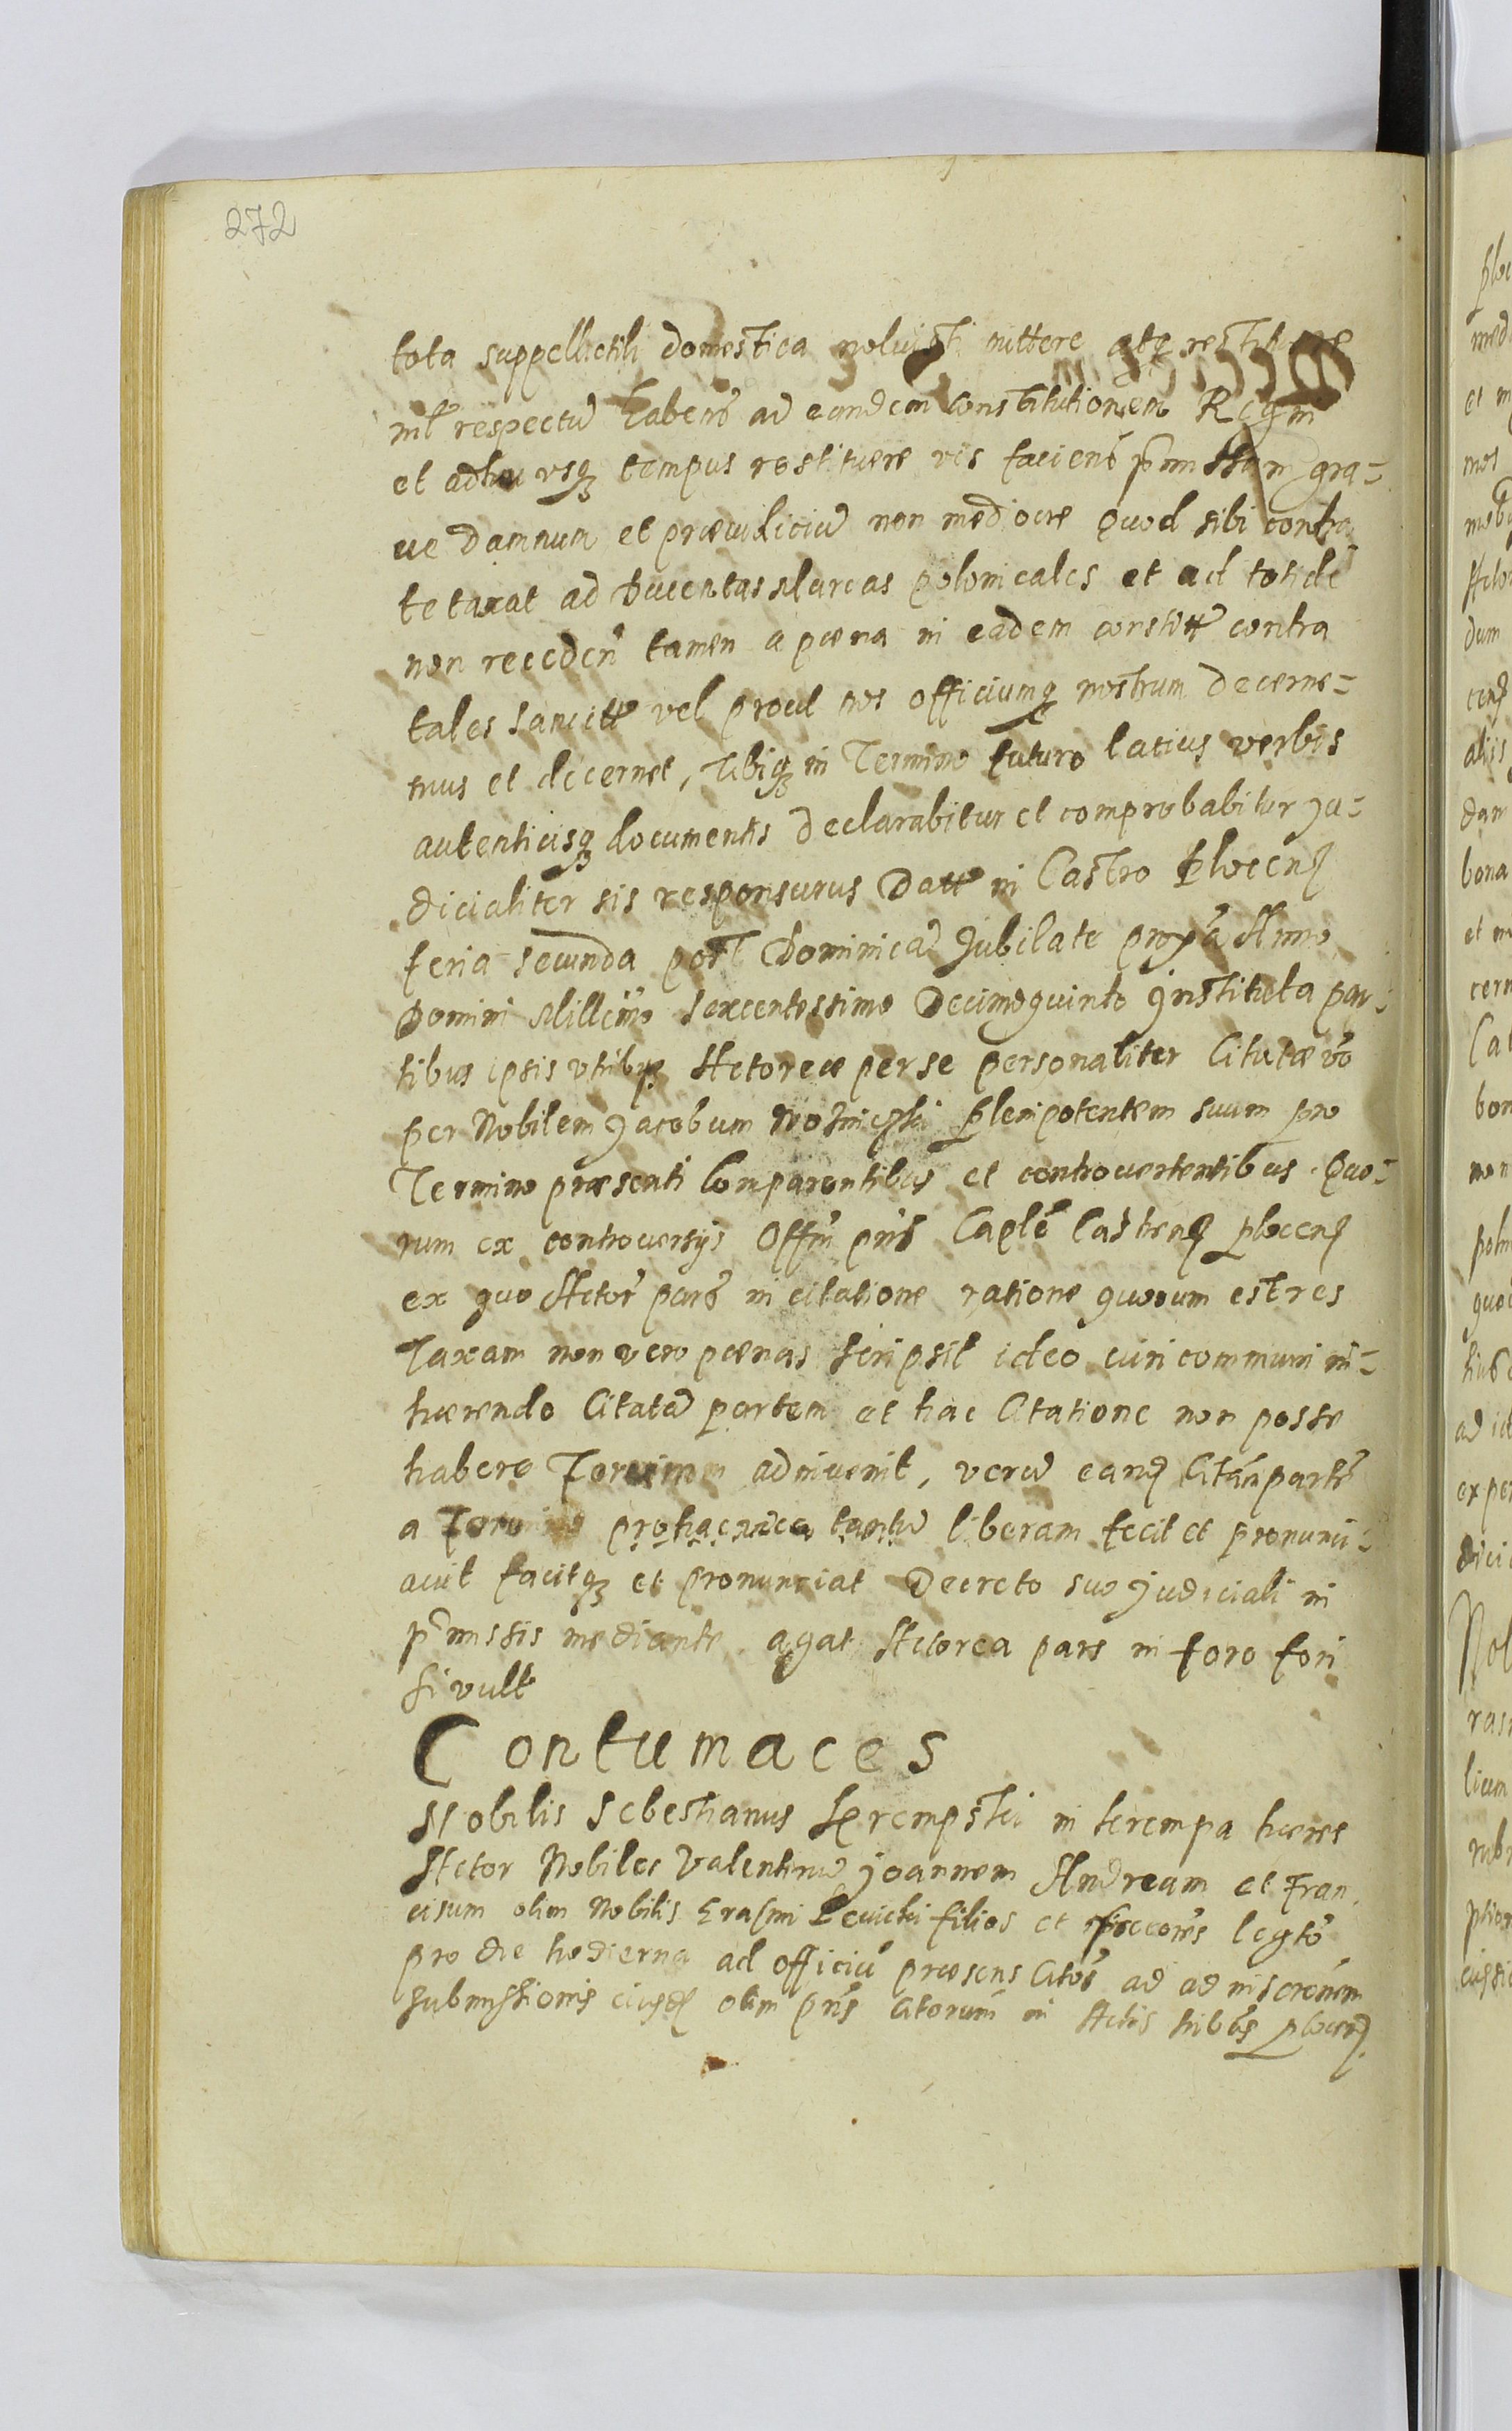 272
tota suppellectili domestica noluisti mittere atq restituere
nil respectũ habens ad eandem constitutionem Regni
et adhuc usq tempus restituere vis faciens pmissam gra-
ue damnum et præiudiciũ non mediocre Quod sibi contra
te taxat ad Ducentas Marcas polonicales et ad totidẽ
non recedeñ tamen a pœna in eadem constitt contra
tales sancitt vel procul nos officiumq nostrum decerne-
mus et decernet, Tibiq in Termino futuro latius verbis
autenticisq documentis declarabitur et comprobabitur ju-
dicialiter sis responsurus Datt in Castro Plocen
feria secunda post Dominicã Jubilate proxã Anno
Domini Millĩmo Sexcentessimo Decimoquinto Instituta par-
tibus ipsis Actoreæ per se personaliter Citatæ võ
per Nobilem Jacobum Plenipotentem suum pro
Termino præsenti Comparentibus et controuertentibus. Quo-
rum ex controuersijs Offm pñs Caplẽ Castren plocen
ex quo Actor pars in citatione ratione quorum est res
Taxam non vero pœnas scripsit ideo iuri communi in-
hærendo Citatã partem et hac Citatione non posse
habere Terminum adinuenit, verũ eand Citam partẽ
a Termino pro hac vice tantũ liberam fecit et pronunci-
auit facitq et pronunciat Decreto suo judiciali in
pmissis mediante agat Actorea pars in foro fori
si vult
Contumaces
Nobilis Sebestianus Krempski in krempa hæres
Actor Nobiles Valentinũ Joannem Andream et Fran
cisum olim Nobilis Erasmi Leuicki filios et succeores legto
pro die hodierna ad officiũ præsens Citos ad
submissionis eiusd olim pñs Citorum in Actis plocen